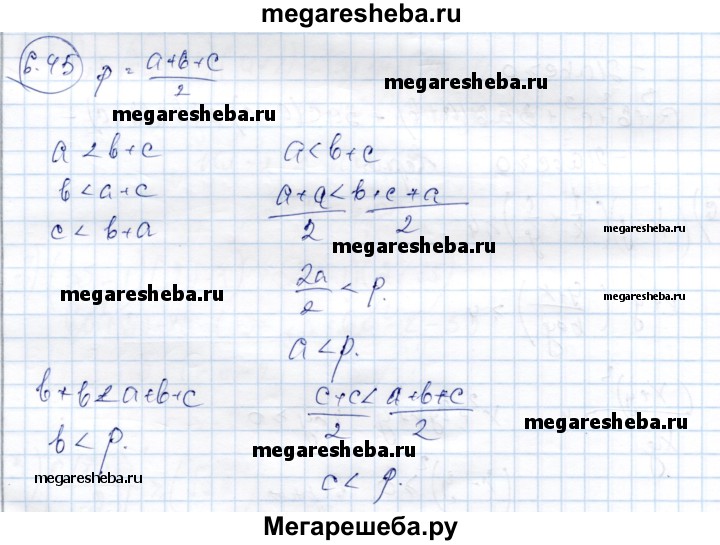 megaresheba.ru
6.45 p = \frac{a+b+c}{2}
megaresheba.ru megaresheba.ru
a < b+c
b < a+c
c < b+a
a < b+c
\frac{a+a}{2} < \frac{b+c+a}{2}
megaresheba.ru megaresheba.ru
\frac{2a}{2} < p.
megaresheba.ru megaresheba.ru
a < p.
b+b < a+b+c
b < p.
\frac{c+c}{2} < \frac{a+b+c}{2}
megaresheba.ru
megaresheba.ru
megaresheba.ru megaresheba.ru
c < p.
Мегарешеба.ру